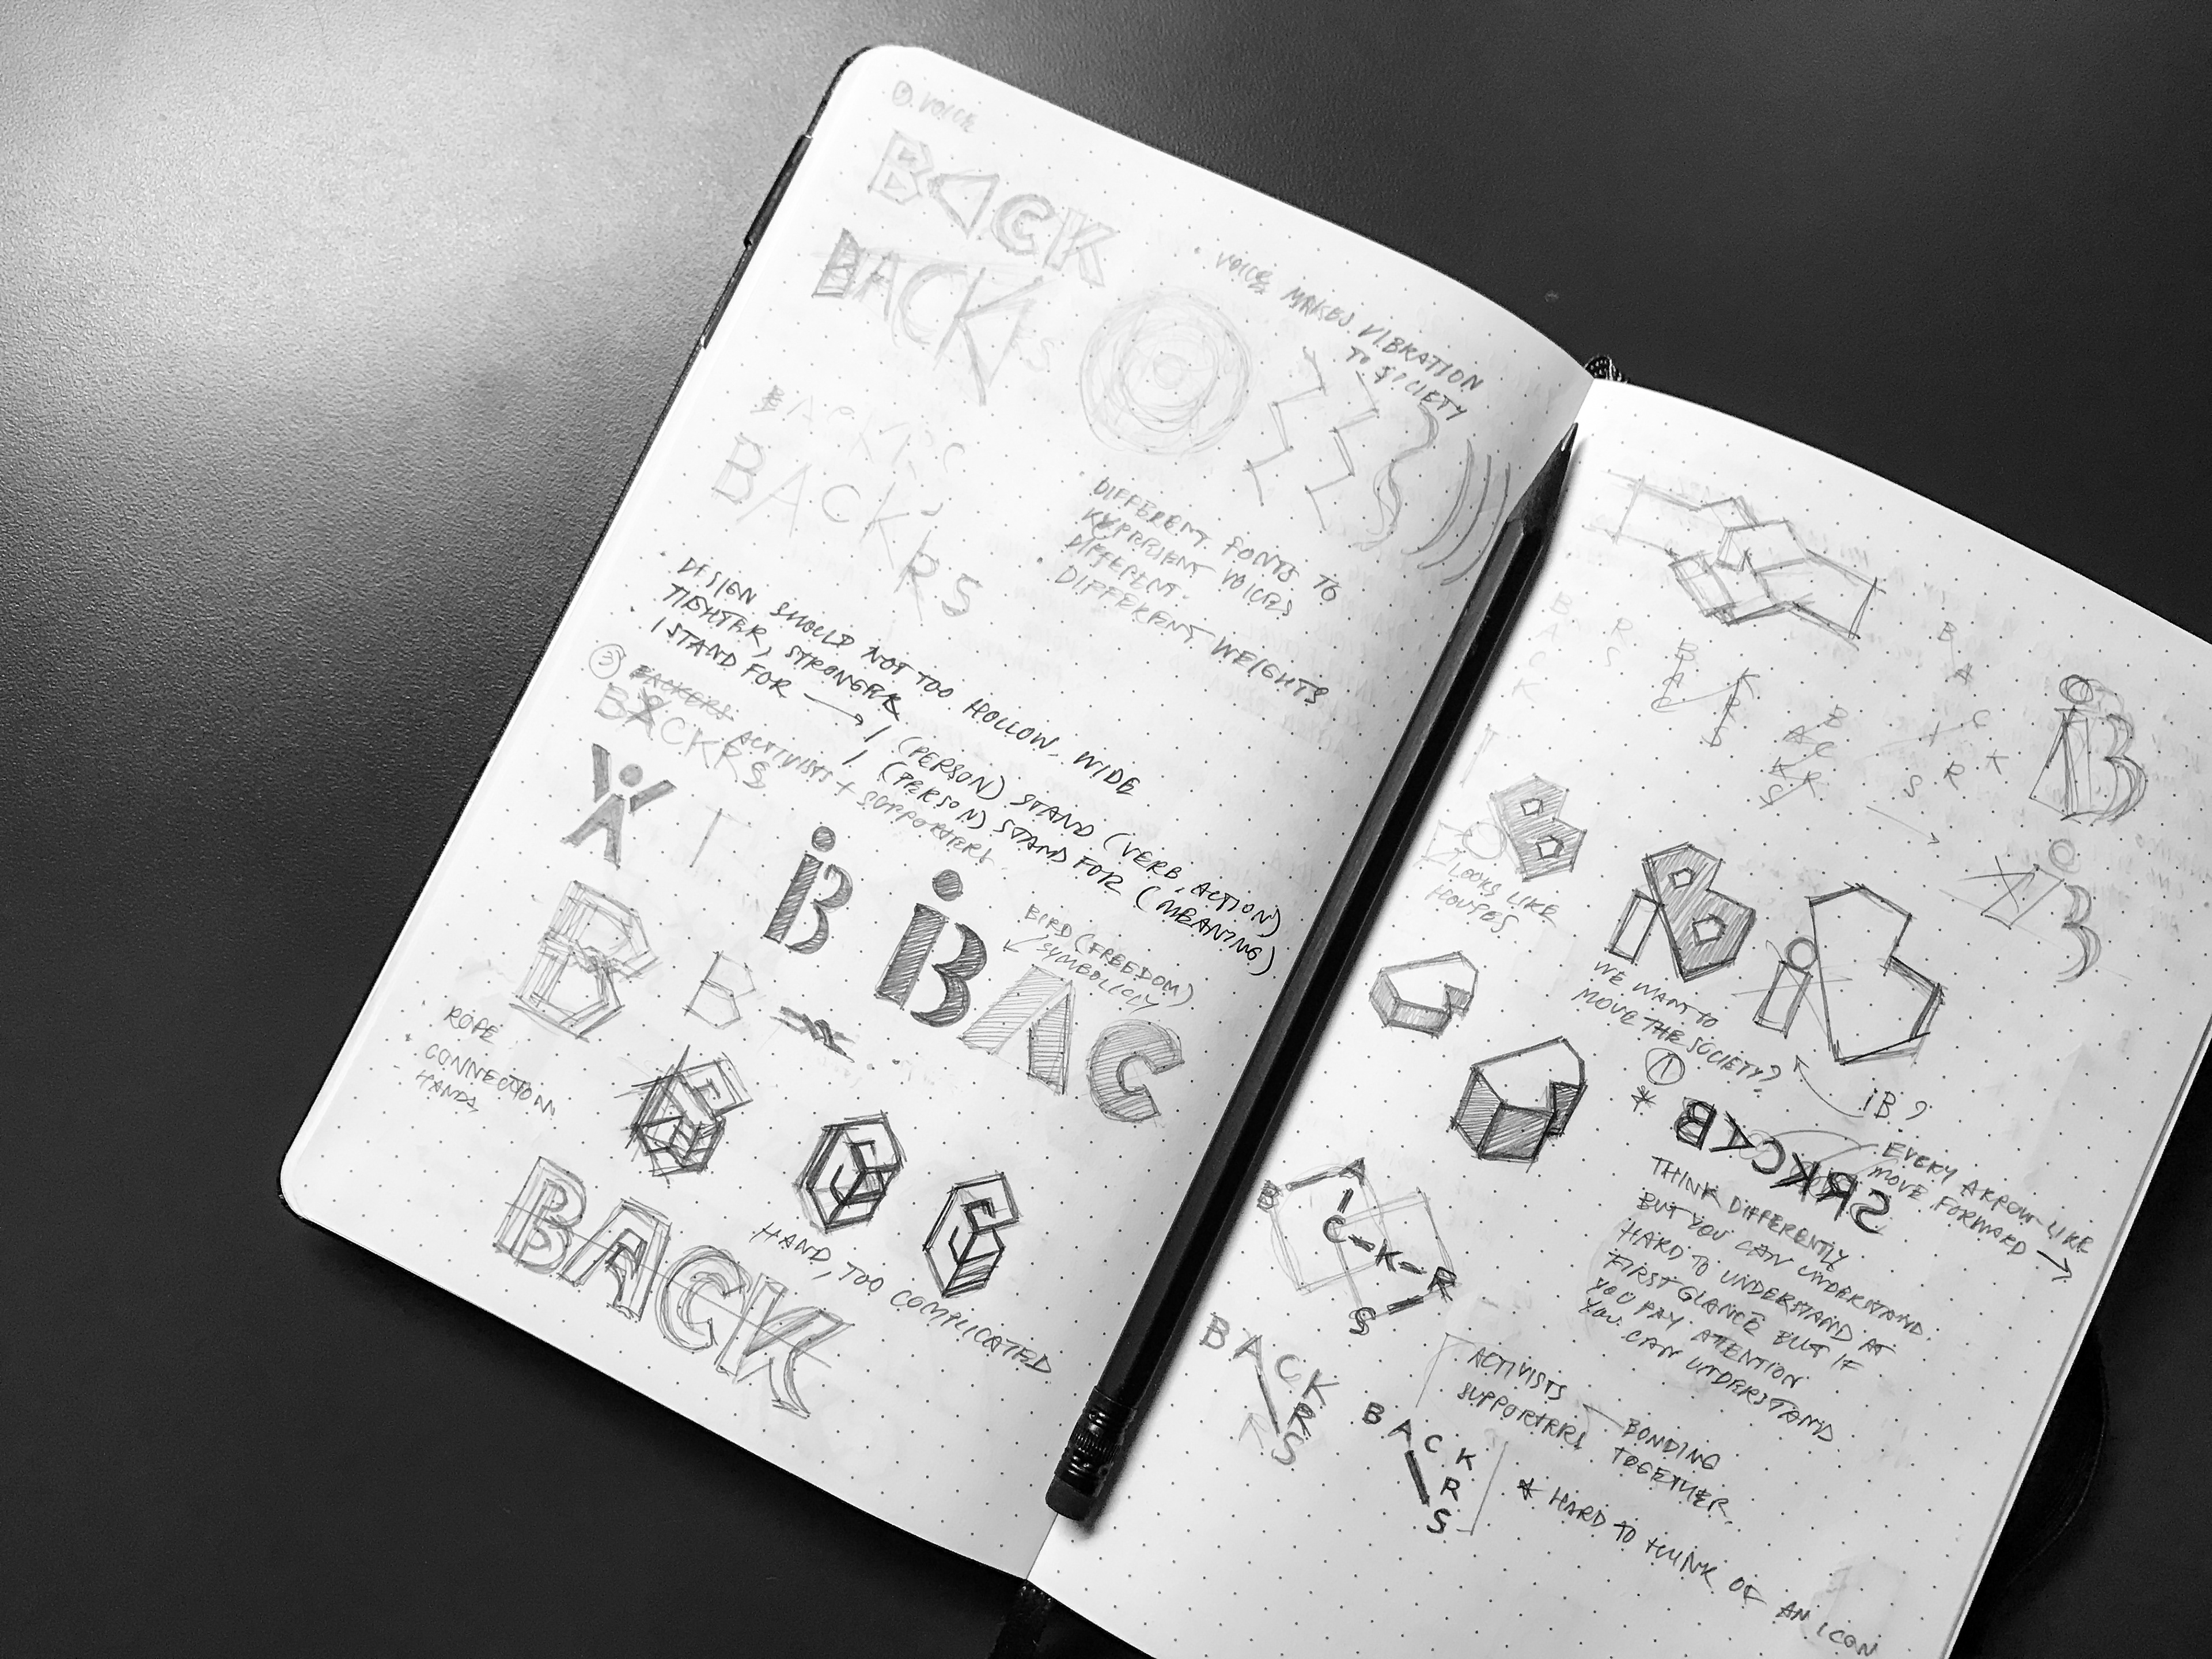 ① VOICE
BACK
BACK
• VOICE MAKES VIBRATION
TO SOCIETY
BACKRS
• DIFFERENT FONTS TO
REPRESENT VOICES
DIFFERENT.
• DIFFERENT WEIGHTS
• DESIGN SHOULD NOT TOO HOLLOW, WIDE
TIGHTER, STRONGER
• I STAND FOR → I (PERSON) STAND (VERB, ACTION)
I (PERSON) STAND FOR (MEANING)
③ BACKERS ACTIVISTS + SUPPORTERS
BACKRS
iB
iBAC
BIRD (FREEDOM)
SYMBOLICLY
B
B
ROPE
• CONNECTION
- HANDS
HAND, TOO COMPLICATED
BACK
B
A
C
K
R
S
B
A
C
K
R
S
B
A C
K R
S
B
A
C
K
R
S
iB
LOOKS LIKE
HOUSES
iB
WE WANT TO
MOVE THE SOCIETY?
iB?
①
* BACKRS
EVERY ARROW-LIKE
MOVE FORWARD →
THINK DIFFERENTLY
BUT YOU CAN UNDERSTAND.
HARD TO UNDERSTAND AT
FIRST GLANCE BUT IF
YOU PAY ATENTION
YOU CAN UNDERSTAND
B A
C-K-R
S
BACK
R
S
B A C K
R
S
ACTIVISTS
SUPPORTERS
BONDING
TOGETHER.
* HARD TO THINK OF AN ICON